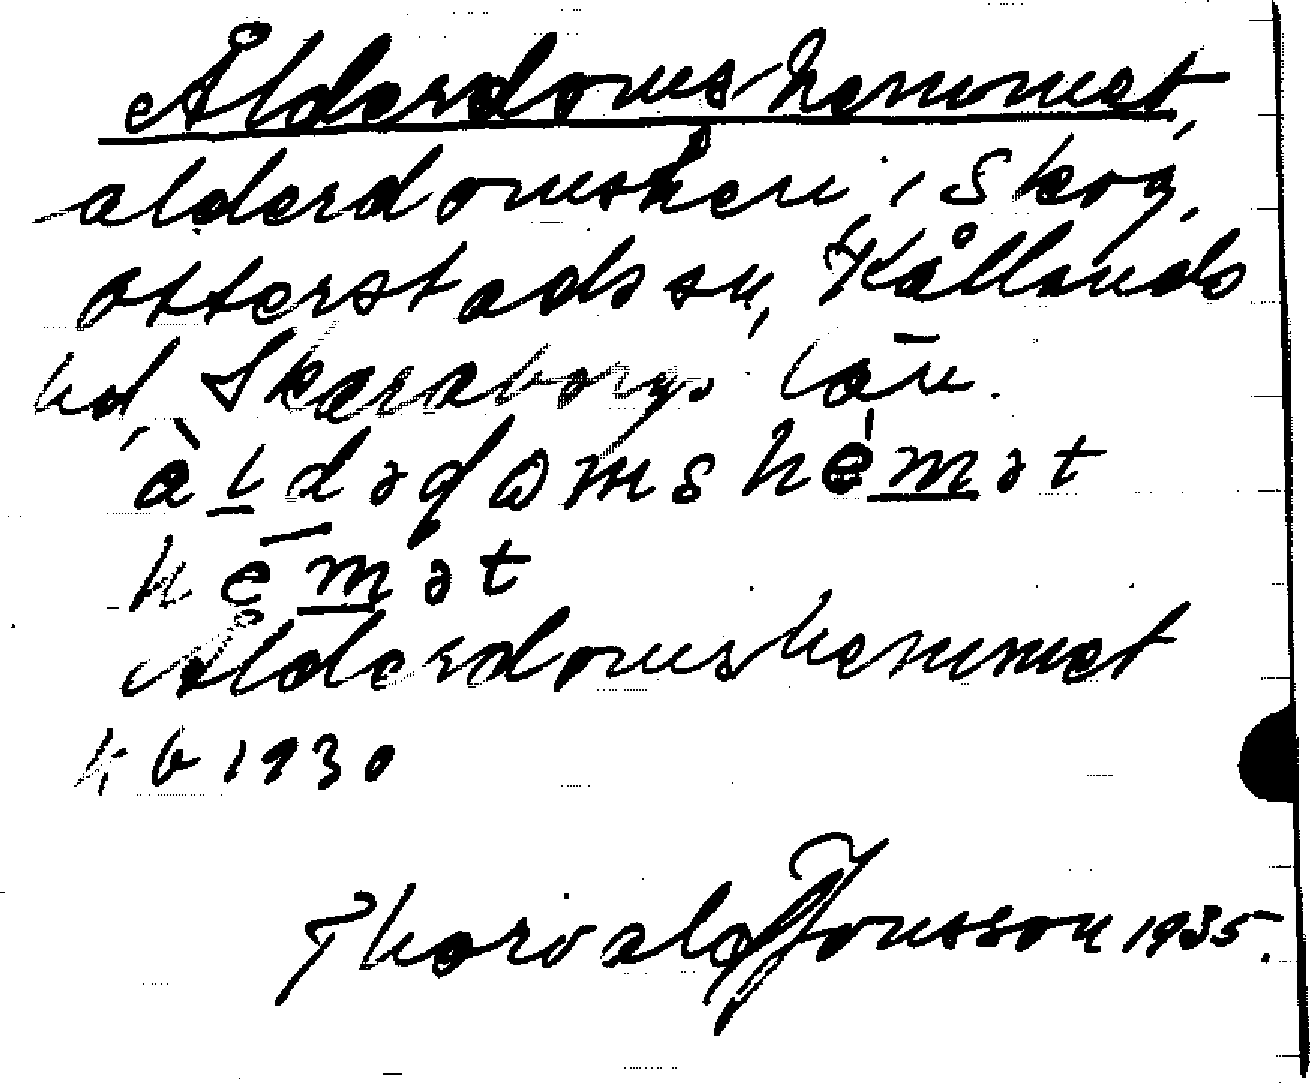 Ålderdomshemmet,
ålderdomshem i Skog,
Otterstads sn, Kållands
hd, Skaraborgs län.
àldədωmshèmət
hēmət
Ålderdomshemmet
kb 1930
Thorvald Jonsson 1935.